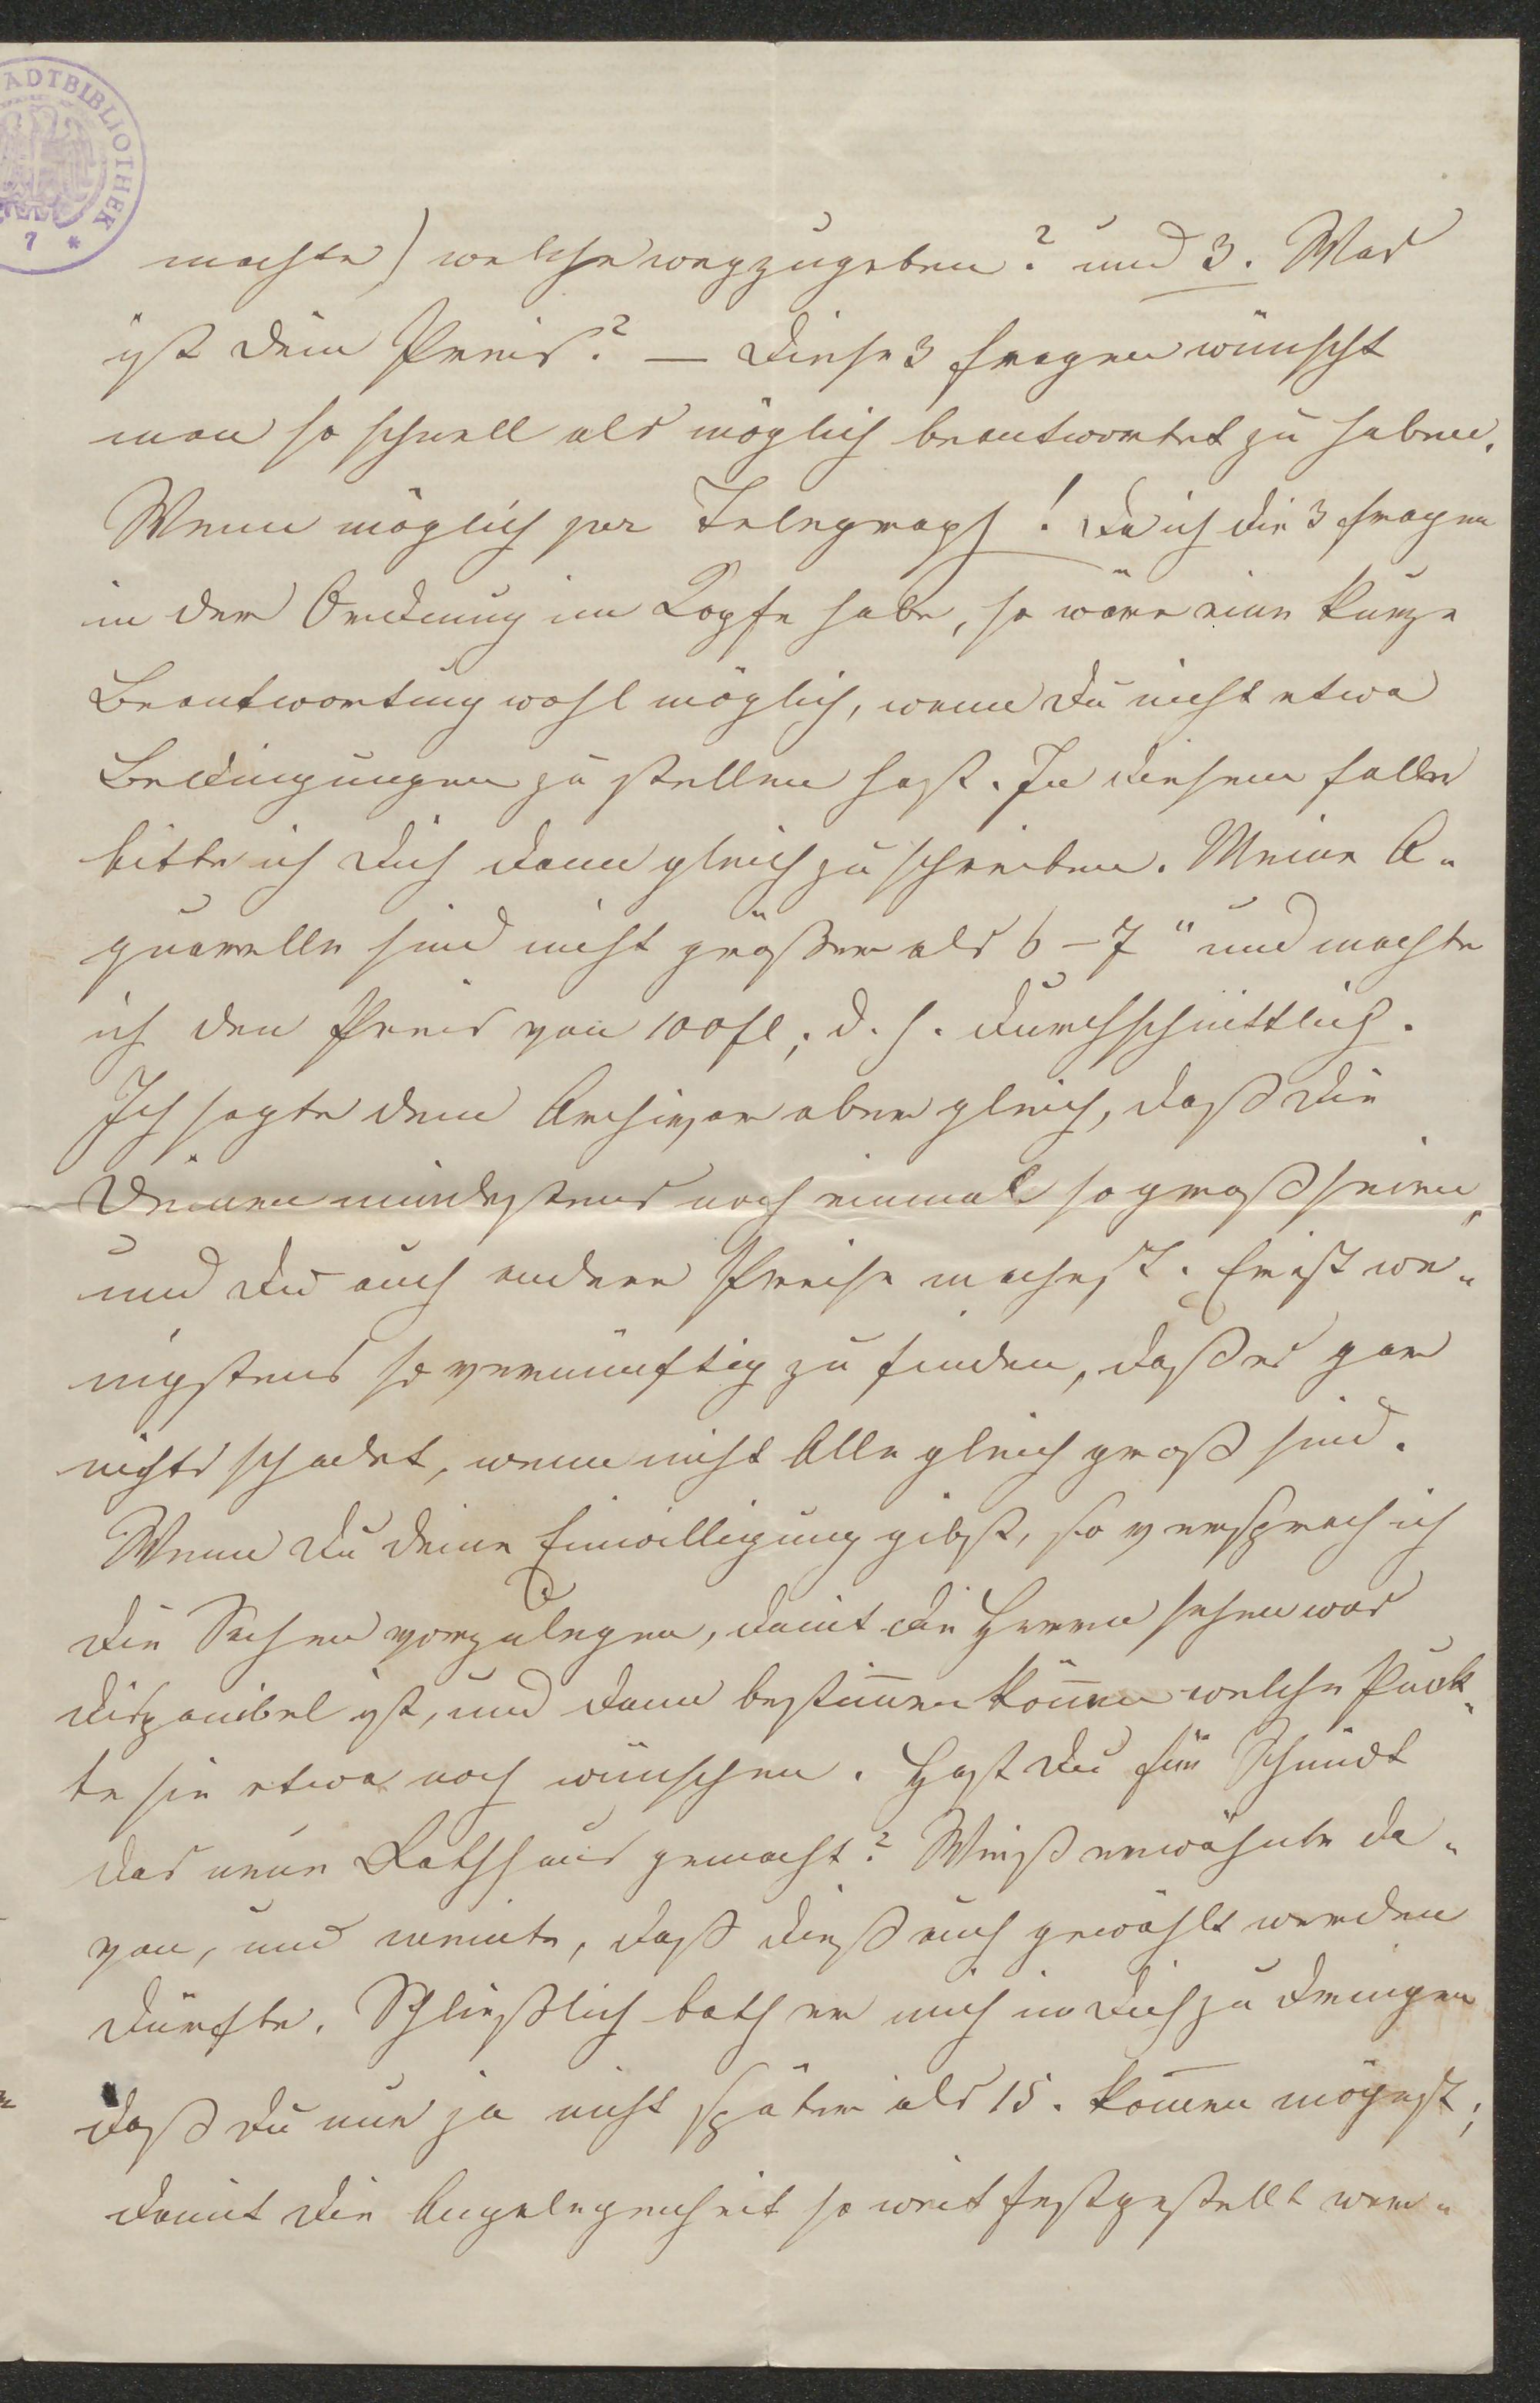 ADTBIBLIOTHEK
7 *
machte) welche wegzugeben? und 3. Was
ist dein Preis? — Diese 3 Fragen wünscht
man so schnell als möglich beantwortet zu haben.
Wenn möglich per Telegraph! Da ich die 3 Fragen
in der Ordnung im Kopfe habe, so wäre eine kurze
Beantwortung wohl möglich, wenn Du nicht etwa
Bedingungen zu stellen hast. In diesem Falle
bitte ich Dich dann gleich zu schreiben. Meine A-
quarelle sind nicht größer als 6–7" und machte
ich den Preis von 100 fl, d. h. durchschnittlich.
Ich sagte dem Archivar aber gleich, daß die
Deinen mindestens noch einmal so groß seien,
und Du auch andere Preise machest. Er ist we-
nigstens so vernünftig zu finden, daß es gar
nichts schadet, wenn nicht Alle gleich groß sind.
Wenn Du Deine Einwilligung gibst, so versprach ich
die Sachen vorzulegen, damit die Herren sehen was
disponibel ist, und dann bestim̅en kön̅en welche Punk-
te sie etwa noch wünschen. Hast Du für Schmidt
das neue Rathhaus gemacht? Weiß erwähnte da-
von, und meinte, daß dieß auch gewählt werden
dürfte. Schließlich bath er mich in Dich zu dringen
daß Du nur ja nicht später als 15. kom̅en mögest;
damit die Angelegenheit so weit festgestellt wer-